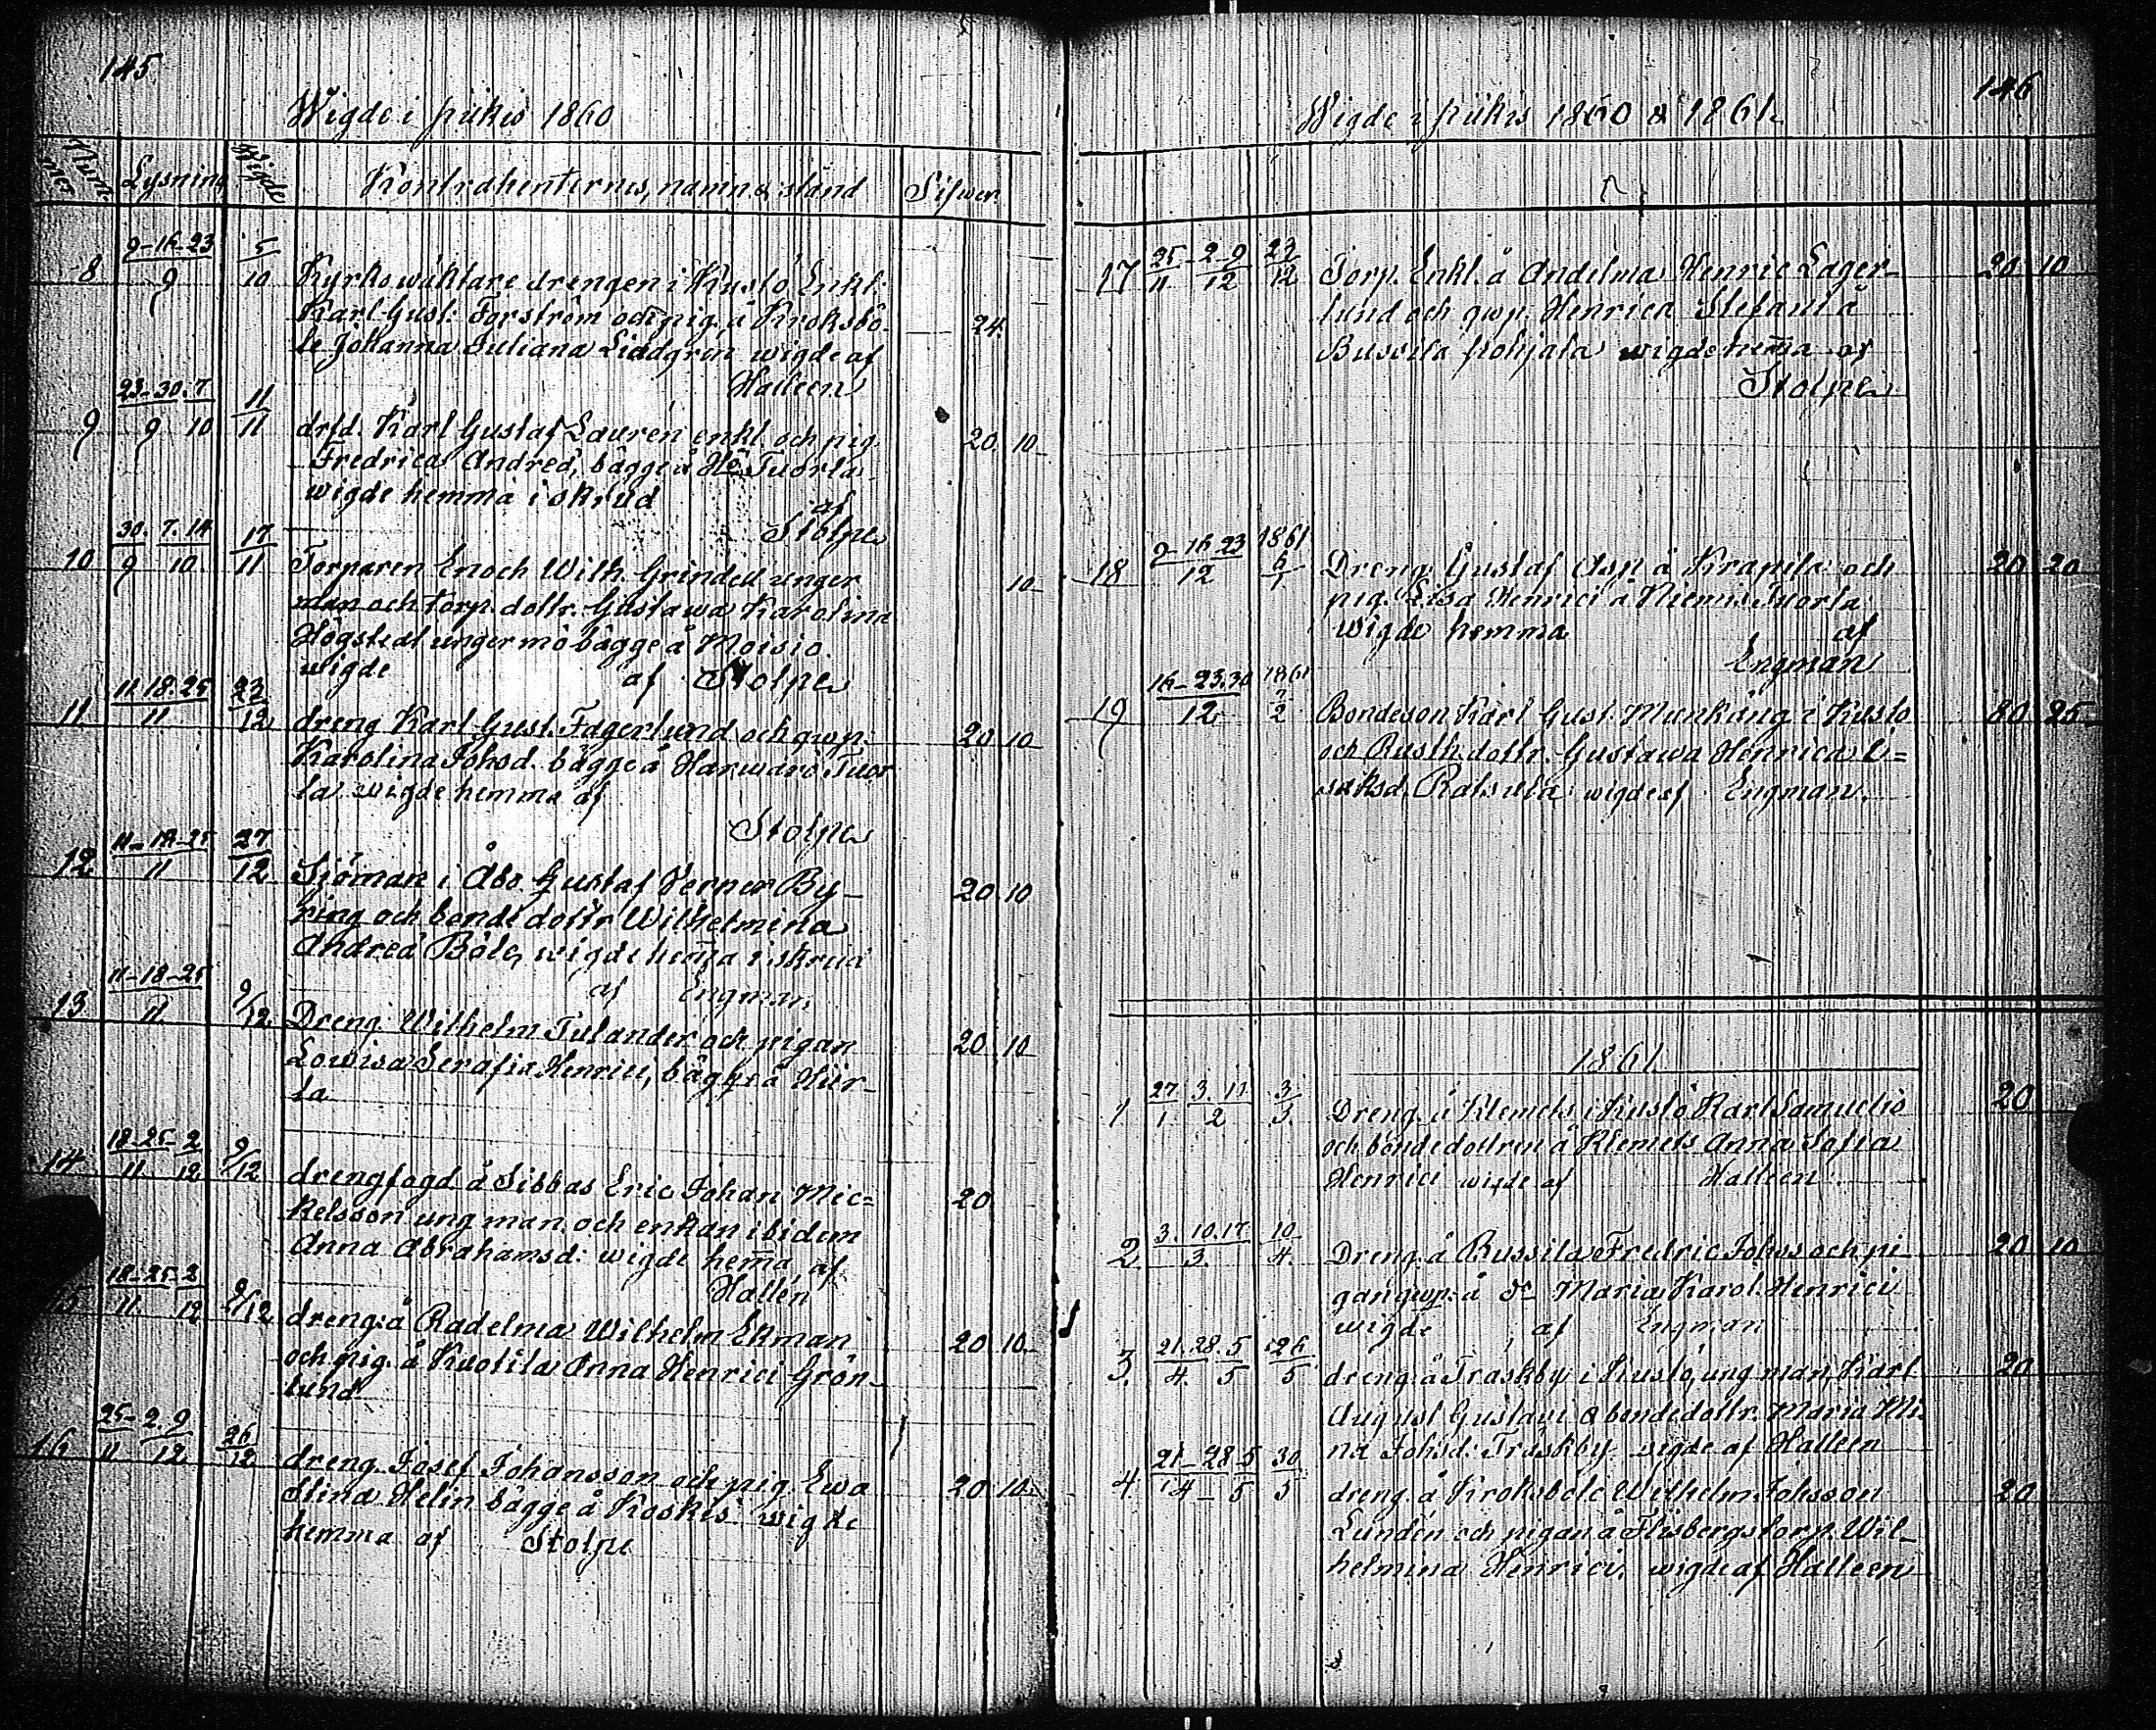 145
Wigde i pikis 1860
Num-
mer
Lysning
Wigde
Kontrahenternes, namn & stånd
Silfwer
8
9-16-23
9
5
10
Kyrkowäktare drengen i Kustö Enkl:
Karl Gust: Forström och pig. å Kroksbö-
le Johanna Juliana Lindgren wigde af
Halleen
24.
9
23-30. 7
9 10
11
11
drfd. Karl Gustaf Lauren enkl. och pig.
Fredrica Andreæ, bägge å Tuorla
wigde hemma i skrud
af
Stolpe
20. 10
10
30. 7. 14
9 10
17
11
Torparen Enoch Wilh. Grindell unger
man och torp. dottr. Gustawa Karolina
Högstedt unger mö bägge å Moisio
wigde af Stolpe
10
11
11. 18. 25
11
23
12
dreng Karl Gust. Fagerlund och qwp.
Karolina Johsd. bägge å Harwaro Tuor
la wigde hemma af
Stolpe
20 10
12
11-18-25
11
27
12
Sjöman i Åbo Gustaf Verner By-
ring och bonde dottr Wilhelmina
Andreæ Böle, wigde hem̄a i skrud
af Engman
20 10
13
11-18-25
11
9/12
Dreng Wilhelm Tulander och pigan
Lowisa Serafia Henrici, bägge å
la
20 10
14
18-25-2
11 12
9/12
drengfogd å Sibbas Eric Johan Mic=
kelsson ung man och enkan ibidem
Anna Abrahamsd: wigde hem̄a af
Hallén
20
15
18-25-2
11 12
9/12
dreng å Radelma Wilhelm Ekman
och pig. å Kuotila Anna Henrici Grön-
lund
20 10
16
25-2 9
11 12
26
12
dreng Josef Johansson och pig. Ewa
Stina Helin bägge å Koskis wigde
hemma af Stolpe
20 10
146
Wigde i pikis 1860 & 1861
17
25-2 9
11 12
23
12
Torp. Enkl. å Andelma Henric Lager-
lund och qwp. Henrica Stefani å
Bussila pohjala wigde hem̄a af
Stolpe
20 10
18
9-16 23
12
1861
6
1
Dreng Gustaf Asp å Krapila och
pig. Lisa Henrici å Niemis Tuorla
wigde hemma af
Engman
20 20
19
16-23. 30
12
1861
2
2
Bondeson Karl Gust. Munkäng i Kusto
och Rusth. dottr. Gustawa Henrica I=
saksd. Ratsula wigde af Engman.
80 25
1861
1
27 3. 17
1 2
3
3.
Dreng å Klemets i Kustö Karl Samuelis
och bondedottren å Klemets Anna Sofia
Henrici wigde af Halleen
20
2
3. 10. 17
3.
10
4.
Dreng. å Bussila Fredric Johss och pi
gan qwp. å do Maria Karol. Henrici
wigde af Engman
20 10
3.
21. 28. 5
4. 5
26
5
dreng å Träskby i Kustö, ung man, Karl
August Gustavi & bondedottr. Maria Mi
na Johsd. Träskby wigde af Halleen
20
4
21-28-5
4-5
30
5
dreng. å Kroksböle Wilhelm Johsson
Lundén och pigan å Flisbergs torp. Wil-
helmina Henrici, wigde af Halleen
20